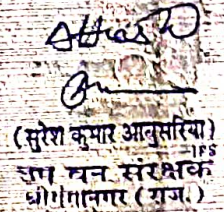 Attested
(सुरेश कुमार आबुसरिया)
IFS
उप वन संरक्षक
श्रीगंगानगर (राज.)